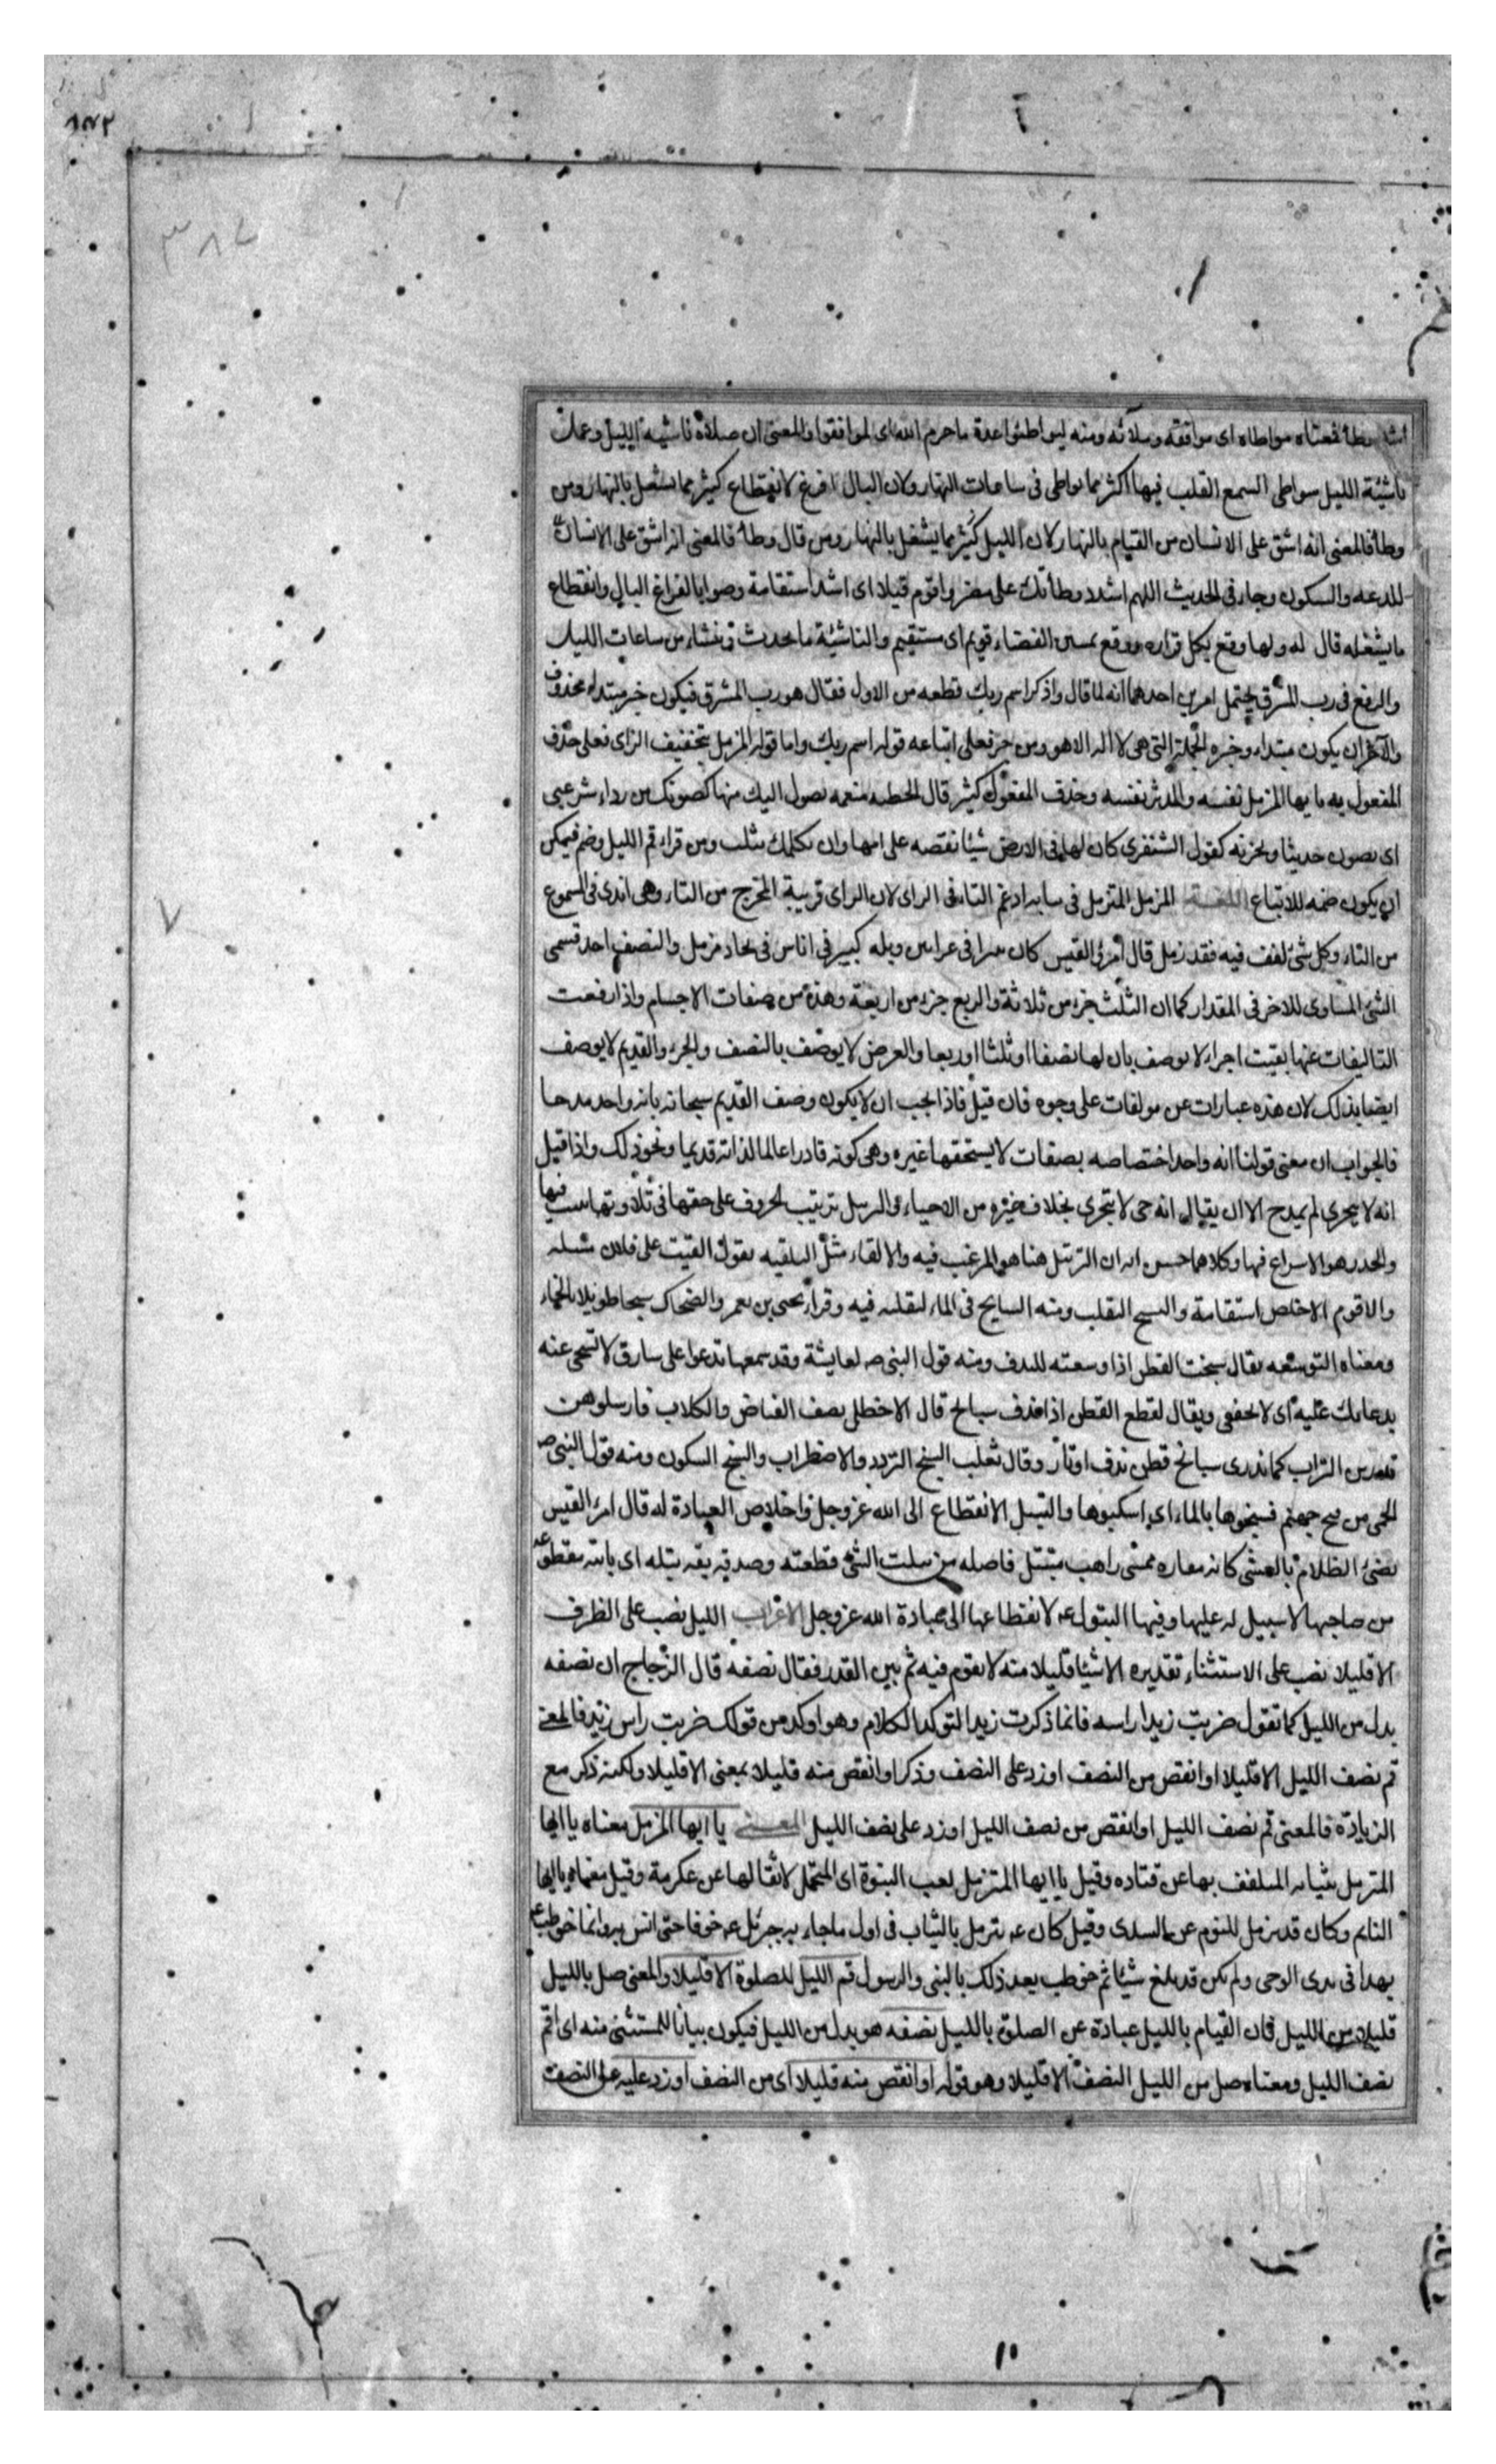 اشد وطأ فمعناه مواطاه اى موافقة وملائه ومنه ليواطئوا عدة ما حرم الله اى ليوافقوا والمعنى ان صلاة ناشئه الليل وعمل
ناشئة الليل يواطى السمع القلب فيها اكثر مما يواطى فى ساعات النهار ولان البال افرغ لانقطاع كثير مما يشغل بالنهار ومن
وطأ فالمعنى انه اشق على الانسان من القيام بالنهار لان الليل كثير مما يشغل بالنهار ومن قال وطأ فالمعنى انه اشق على الانسان
للدعه والسكون وجاء فى الحديث اللهم اشدد وطأتك على مضر واقوم قيلا اى اشد استقامة وصوابا لفراغ البال وانقطاع
ما يشغله قال له ولها وقع بكل قراره ووقع بمستن الفضاء قويم اى مستقيم والناشئة ما يحدث وينشاء من ساعات الليل
والرفع فى رب المشرق يحتمل امرين احدهما انه لما قال واذكر اسم ربك قطعه من الاول فقال هو رب المشرق فيكون خبر مبتداء محذوف
والآخر ان يكون مبتداء وخبره الجملة التى هى لا اله الا هو ومن جر فعلى اتباعه قوله اسم ربك واما قوله المزمل بتخفيف الزاى فعلى حذف
المفعول به يا يها المزمل نفسه والمدثر نفسه وحذف المفعول كثير قال الحطيه منعمه تصول اليك منها كصونك من رداء شرعبى
اى تصون حديثا وتخزنه كقول الشنفرى كان لها فى الارض شيئا تقصه على امها وان تكلمك تبلت ومن قراء قم الليل وضم فيمكن
ان يكون ضمه للاتباع اللغــة المزمل المتزمل فى ثيابه ادغم التاء فى الزاى لان الزاى قريبة المخرج من التاء وهى اندى فى السموع
من التاء وكل شئ لفف فيه فقد زمل قال امرؤ القيس كان ثبيرا فى عرانين وبله كبير فى اناس فى بجاد مزمل والنصف احد قسمى
الشئ المساوى للاخر فى المقدار كما ان الثلث جزء من ثلاثة والربع جزء من اربعة وهذه من صفات الاجسام واذا رفعت
التاليفات عنها بقيت اجزاء لا توصف بان لها نصفا او ثلثا او ربعا والعرض لا يوصف بالنصف والجزء والقديم لا يوصف
ايضا بذلك لان هذه عبارات عن مولفات على وجوه فان قيل فاذا يجب ان لا يكون وصف القديم سبحانه بانه واحد مدحا
فالجواب ان معنى قولنا انه واحد اختصاصه بصفات لا يستحقها غيره وهى كونه قادرا عالما لذاته قديما ونحو ذلك واذا قيل
انه لا يتجزى لم يمدح الا ان يقال انه حى لا يتجزى بخلاف غيره من الاحياء والترتيل ترتيب الحروف على حقها فى تلاوتها بتثبت فيها
والحدر هو الاسراع فيها وكلاهما حسن الا ان الترتيل هنا هو المرغب فيه والالقاء مثل التلقيه تقول القيت على فلان مسئله
والاقوم الاخلص استقامة والسبح التقلب ومنه السابح فى الماء لتقلبه فيه وقراء يحيى بن يعمر والضحاك سبخا طويلا بالخاء
ومعناه التوسعه يقال سبخت القطن اذا وسعته للندف ومنه قول النبى ص لعايشة وقد سمعها تدعوا على سارق لا تسبخى عنه
بدعائك عليه اى لا تخففى ويقال لقطع القطن اذا ندف سبائخ قال الاخطل يصف القناص والكلاب فارسلوهن
يذرين التراب كما يذرى سبائخ قطن ندف اوتار وقال ثعلب السبح التردد والاضطراب والسبخ السكون ومنه قول النبى ص
الحمى من فيح جهنم فسبخوها بالماء اى اسكنوها والتبتل الانقطاع الى الله عز وجل واخلاص العبادة له قال امرء القيس
تضئ الظلام بالعشى كانها مناره ممسى راهب متبتل فاصله من بتلت الشئ قطعته وصدقه بته بتله اى بائنه مقطوعه
من صاحبها لا سبيل له عليها وفيها البتول ع لانقطاعها الى عبادة الله عز وجل الاعراب الليل نصب على الظرف
الا قليلا نصب على الاستثناء تقديره الا شيئا قليلا منه لا تقوم فيه ثم بين القدر فقال نصفه قال الزجاج ان نصفه
بدل من الليل كما تقول ضربت زيدا راسه فانما ذكرت زيدا لتوكيد الكلام وهو اوكد من قولك ضربت راس زيد فالمعنى
قم نصف الليل الا قليلا او انقص من النصف او زد على النصف وذكر او انقص منه قليلا بمعنى الا قليلا ولكنه ذكر مع
الزيادة فالمعنى قم نصف الليل او انقص من نصف الليل او زد على نصف الليل المعــنى يا ايها المزمل معناه يا ايها
المتزمل بثيابه المتلفف بها عن قتاده وقيل يا ايها المتزمل بعب النبوة اى المتحمل لاثقالها عن عكرمة وقيل معناه يا ايها
النايم وكان قد تزمل للنوم عن السدى وقيل كان ع يتزمل بالثياب فى اول ما جاء به جبرئيل ع خوفا حتى انس به وانما خوطب ع
بهذا فى بدى الوحى ولم يكن قد بلغ شيئا ثم خوطب بعد ذلك بالنبى والرسول قم الليل للصلوة الا قليلا والمعنى صل بالليل
قليلا من الليل فان القيام بالليل عبادة عن الصلوة بالليل نصفه هو بدل من الليل فيكون بيانا للمستثنى منه اى قم
نصف الليل ومعناه صل من الليل النصف الا قليلا وهو قوله او انقص منه قليلا اى من النصف او زد عليه على النصف